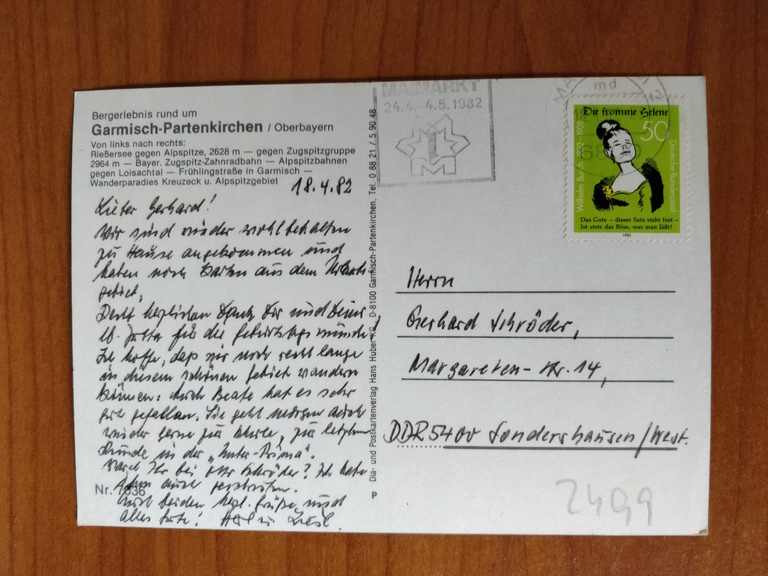 Bergerlebnis rund um
Garmisch-Partenkirchen / Oberbayern
Von links nach rechts:
Rießersee gegen Alpspitze, 2628 m — gegen Zugspitzgruppe
2964 m — Bayer. Zugspitz-Zahnradbahn — Alpspitzbahnen
gegen Loisachtal — Frühlingstraße in Garmisch —
Wanderparadies Kreuzeck u. Alpspitzgebiet
18.4.82
Lieber Gerhard!
Wir sind wieder wohlbehalten
zu Hause angekommen und
haben noch Karten aus dem Urlaubs-
gebiet.
Recht herzlichen Dank Dir und Deiner
lb. Jutta für die Geburtstagswünsche!
Ich hoffe, daß wir noch recht lange
in diesem schönen Gebiet wandern
können: auch Beate hat es sehr
gut gefallen. Sie geht morgen auch
wieder gerne zur Schule, zur letzten
Runde in der „Unter-Prima".
Ward Ihr bei
Euch beiden herzl. Grüße und
alles Gute!
Nr. 1636
Dia- und Postkartenverlag Hans Huber KG, D-8100 Garmisch-Partenkirchen, Tel. 0 88 21 / 5 90 48
P
MAIMARKT
24.4.-4.5.1982
M
md
Die fromme Helene
50
Wilhelm Busch 1832-1908
Deutsche Bundespost
Das Gute – dieser Satz steht fest –
ist stets das Böse, was man läßt!
1982
Herrn
Gerhard Schröder,
Margareten-Str. 14,
DDR 5400 Sondershausen/West.
2499